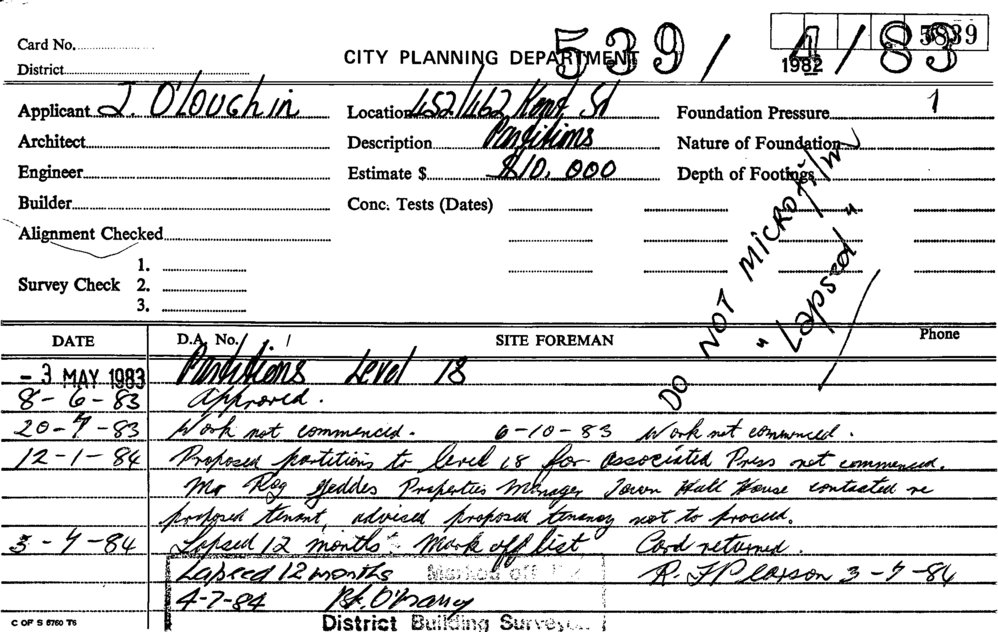 5839
Card No.
CITY PLANNING DEPARTMENT 539/4/83
1982
District
Applicant J. O'Loughin Location 452/462 Kent St Foundation Pressure 1
Architect Description Partitions Nature of Foundation
Engineer Estimate $ $10,000 Depth of Footings
Builder Conc. Tests (Dates)
Alignment Checked
DO NOT MICROFILM
"Lapsed"
1.
Survey Check 2.
3.
DATE D.A. No. / / SITE FOREMAN Phone
- 3 MAY 1983 Partitions Level 18
8-6-83 Approved.
20-7-83 Work not commenced. 6-10-83 Work not commenced.
12-1-84 Proposed partitions to level 18 for Associated Press not commenced.
Mr Reg Geddes Properties Manager Town Hall House contacted re
proposed tenant, advised proposed tenancy not to proceed.
3-7-84 Lapsed 12 months - Mark off list Card returned.
Lapsed 12 months Marked off R. F Pearson 3-7-84
4-7-84
District Building Surveyor
C OF S 6760 T6